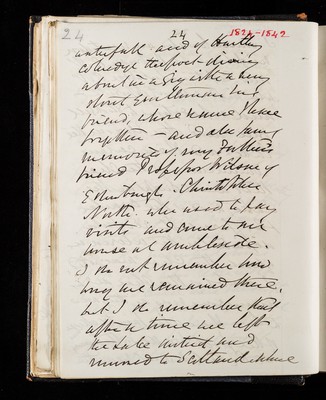 24 24 1824-1842
waterfall and of Hartley
Coleridge the poet driving
about in a Gig with a very
stout Gentleman his
friend, whose name I have
forgotten – and also some
memories of my Father's
friend Professor Wilson of
Edinburgh. Christopher
North. who used to pay
visits and come to our
house at Ambleside.
I do not remember how
long we remained there,
but I do remember that
after a time we left
the Lake district and
removed to Scotland where